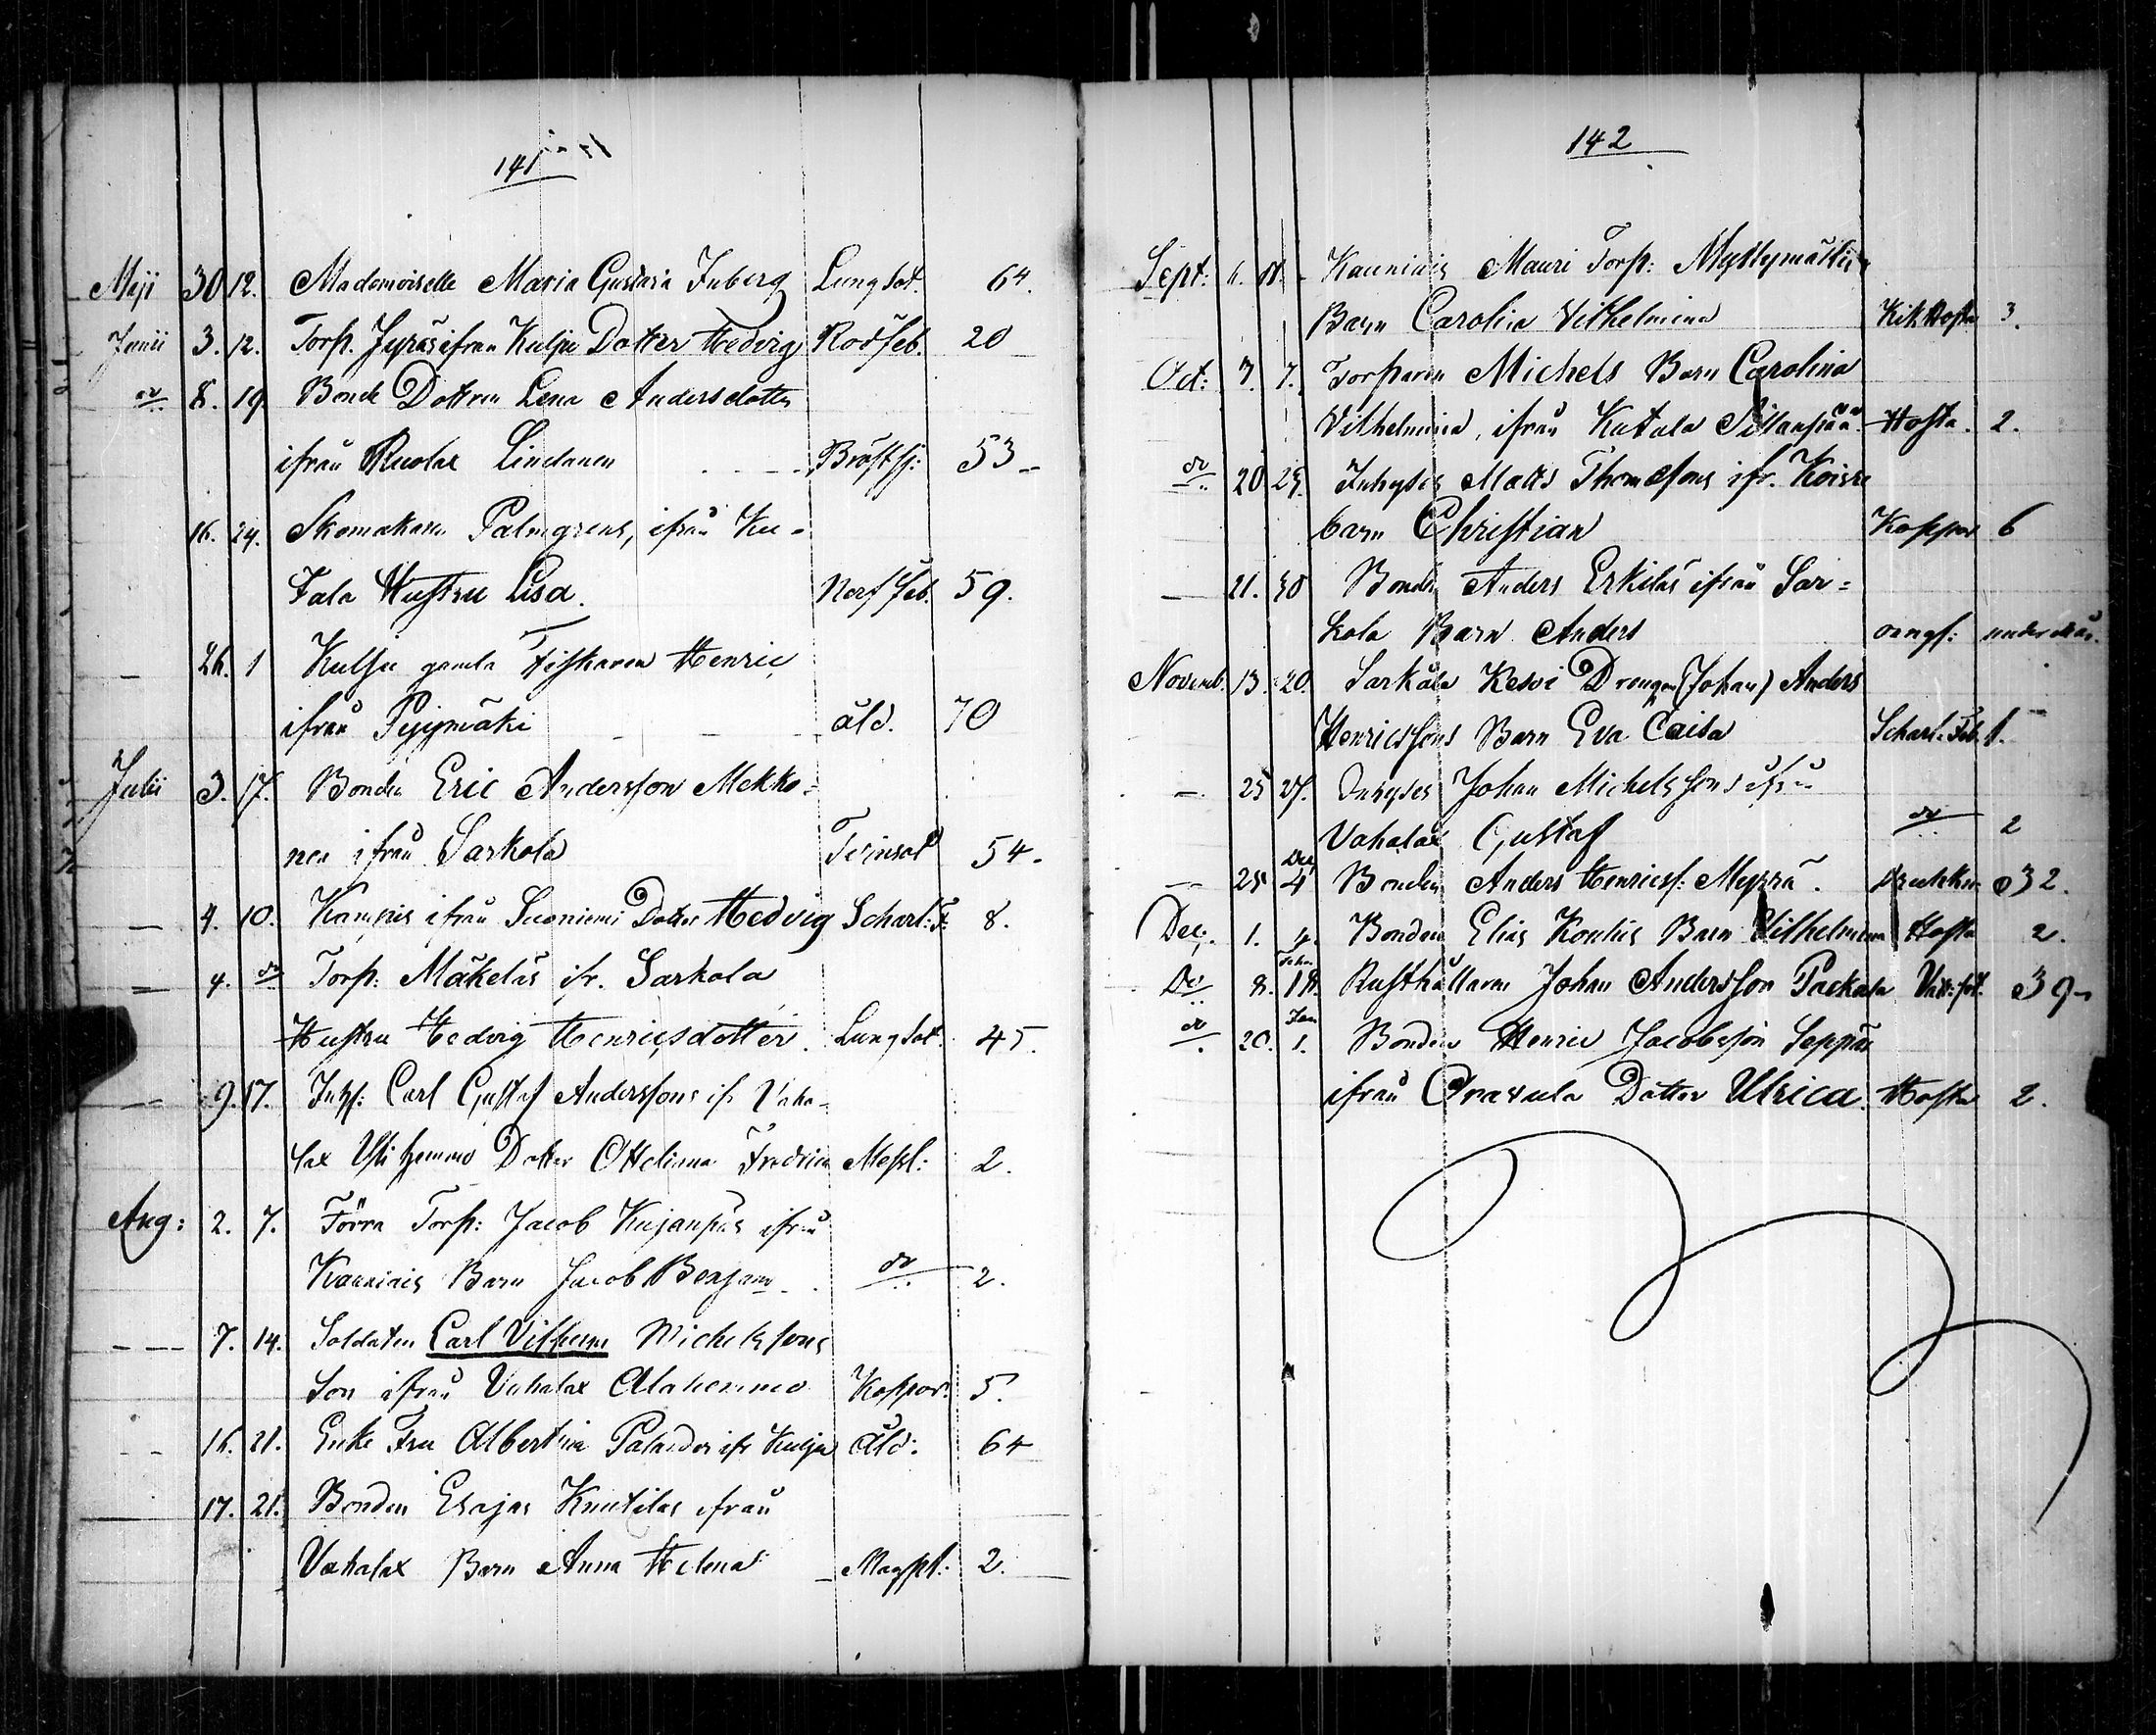 141
Maji 30 12. Mademoiselle Maria Gustava Inberg Lungsot. 64.
Junii 3. 12. Torp. Jyräs ifrån Kulju Dotter Hedvig Rödfeb. 20
do 8. 19 Bonde Dottren Lena Andersdotter
ifrån Ruolax Bröstsj: 53
16. 24. Skomakaren Palmgrens, ifrån Ku-
Hustru Lisa. Nerffeb. 59.
— 26. 1 Kulju gamla Henric
ifrån Pyymäki åld. 70
Julii 3. 17. Bonden Eric Andersson Mekko-
nen ifrån Sarkola Tvinsot 54.
— 4. 10. Kampis ifrån Suoniemi Dotter Hedvig Scharl: F: 8.
— 4. do Torp: Mäkeläs ifr. Sarkola
Hustru Hedvig Henricsdotter. Lungsot. 45.
— 9. 17. Inhs: Carl Gustaf Anderssons ifr Vaha-
lax Dotter Ottiliana Fredrica Messl: 2.
Aug: 2. 7. Förra Torp: Jacob Kujanpäs ifrån
Kauniais Barn Jacob Benjam do 2.
— 7. 14. Soldaten Carl Vilhelm Michelssons
Son ifrån Vahalax Alahemmo Koppor. 5.
— 16. 21. Enke Fru Albertina Palander ifr Kulju Åld: 64
17. 21. Bonden Esajas Knutilas ifrån
Vahalax Barn Anna Helena Magpl: 2.
142
Sept: 6. Kauniais Mauri Torp: Myllymäkis
Barn Carolina Vilhelmina Kikhosta 3.
Oct: 3. 7. Torparen Michels Barn Carolina
Vilhelmina, ifrån Kutala Sillanpää Hosta. 2.
do 20 25. Inhyses Matts Thomassons ifr. Koivu
barn Christian Koppor 6
— 21. 30 Bonden Anders Erkiläs ifrån Sar-
kola Barn Anders
Novemb. 13. 20. Sarkola Kesvi Drengen (Johan) Anders
Henricssons Barn Eva Caisa Scharl. Feb. 1.
— 25 27. Inhyses Johan Michelssons ifrån
Vahalax Gustaf do 2
— 25 Dec 4 Bonden Anders Henricss: Myrrä. Drukkn 32.
Dec: 1. 4. Bonden Elias Koukis Barn Vilhelmina Hosta 2.
Do 8. 18. Rusthållaren Johan Andersson Packala 39
do 20. Jan 1. Bonden Henric Jacobsson Seppäs
ifrån Dotter Ulrica. Hosta 2.